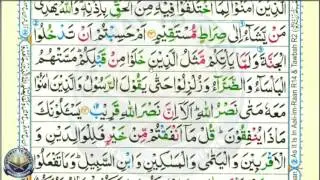 الَّذِيْنَ اٰمَنُوْا لِمَا اخْتَلَفُوْا فِيْهِ مِنَ الْحَقِّ بِاِذْنِهٖ ؕ وَاللّٰهُ يَهْدِيْ
مَنْ يَّشَآءُ اِلٰى صِرَاطٍ مُّسْتَقِيْمٍ اَمْ حَسِبْتُمْ اَنْ تَدْخُلُوا
الْجَنَّةَ وَلَمَّا يَاْتِكُمْ مَّثَلُ الَّذِيْنَ خَلَوْا مِنْ قَبْلِكُمْ ؕ مَسَّتْهُمُ
الْبَاْسَآءُ وَالضَّرَّآءُ وَزُلْزِلُوْا حَتّٰى يَقُوْلَ الرَّسُوْلُ وَالَّذِيْنَ اٰمَنُوْا
مَعَهٗ مَتٰى نَصْرُ اللّٰهِ ؕ اَلَآ اِنَّ نَصْرَ اللّٰهِ قَرِيْبٌ يَسْـَٔلُوْنَكَ
مَاذَا يُنْفِقُوْنَ ؕ قُلْ مَآ اَنْفَقْتُمْ مِّنْ خَيْرٍ فَلِلْوَالِدَيْنِ وَ
الْاَقْرَبِيْنَ وَالْيَتٰمٰى وَالْمَسٰكِيْنِ وَابْنِ السَّبِيْلِ ؕ وَمَا تَفْعَلُوْا
As it Is In Aal-im-Raan R14 & Tawbah R2